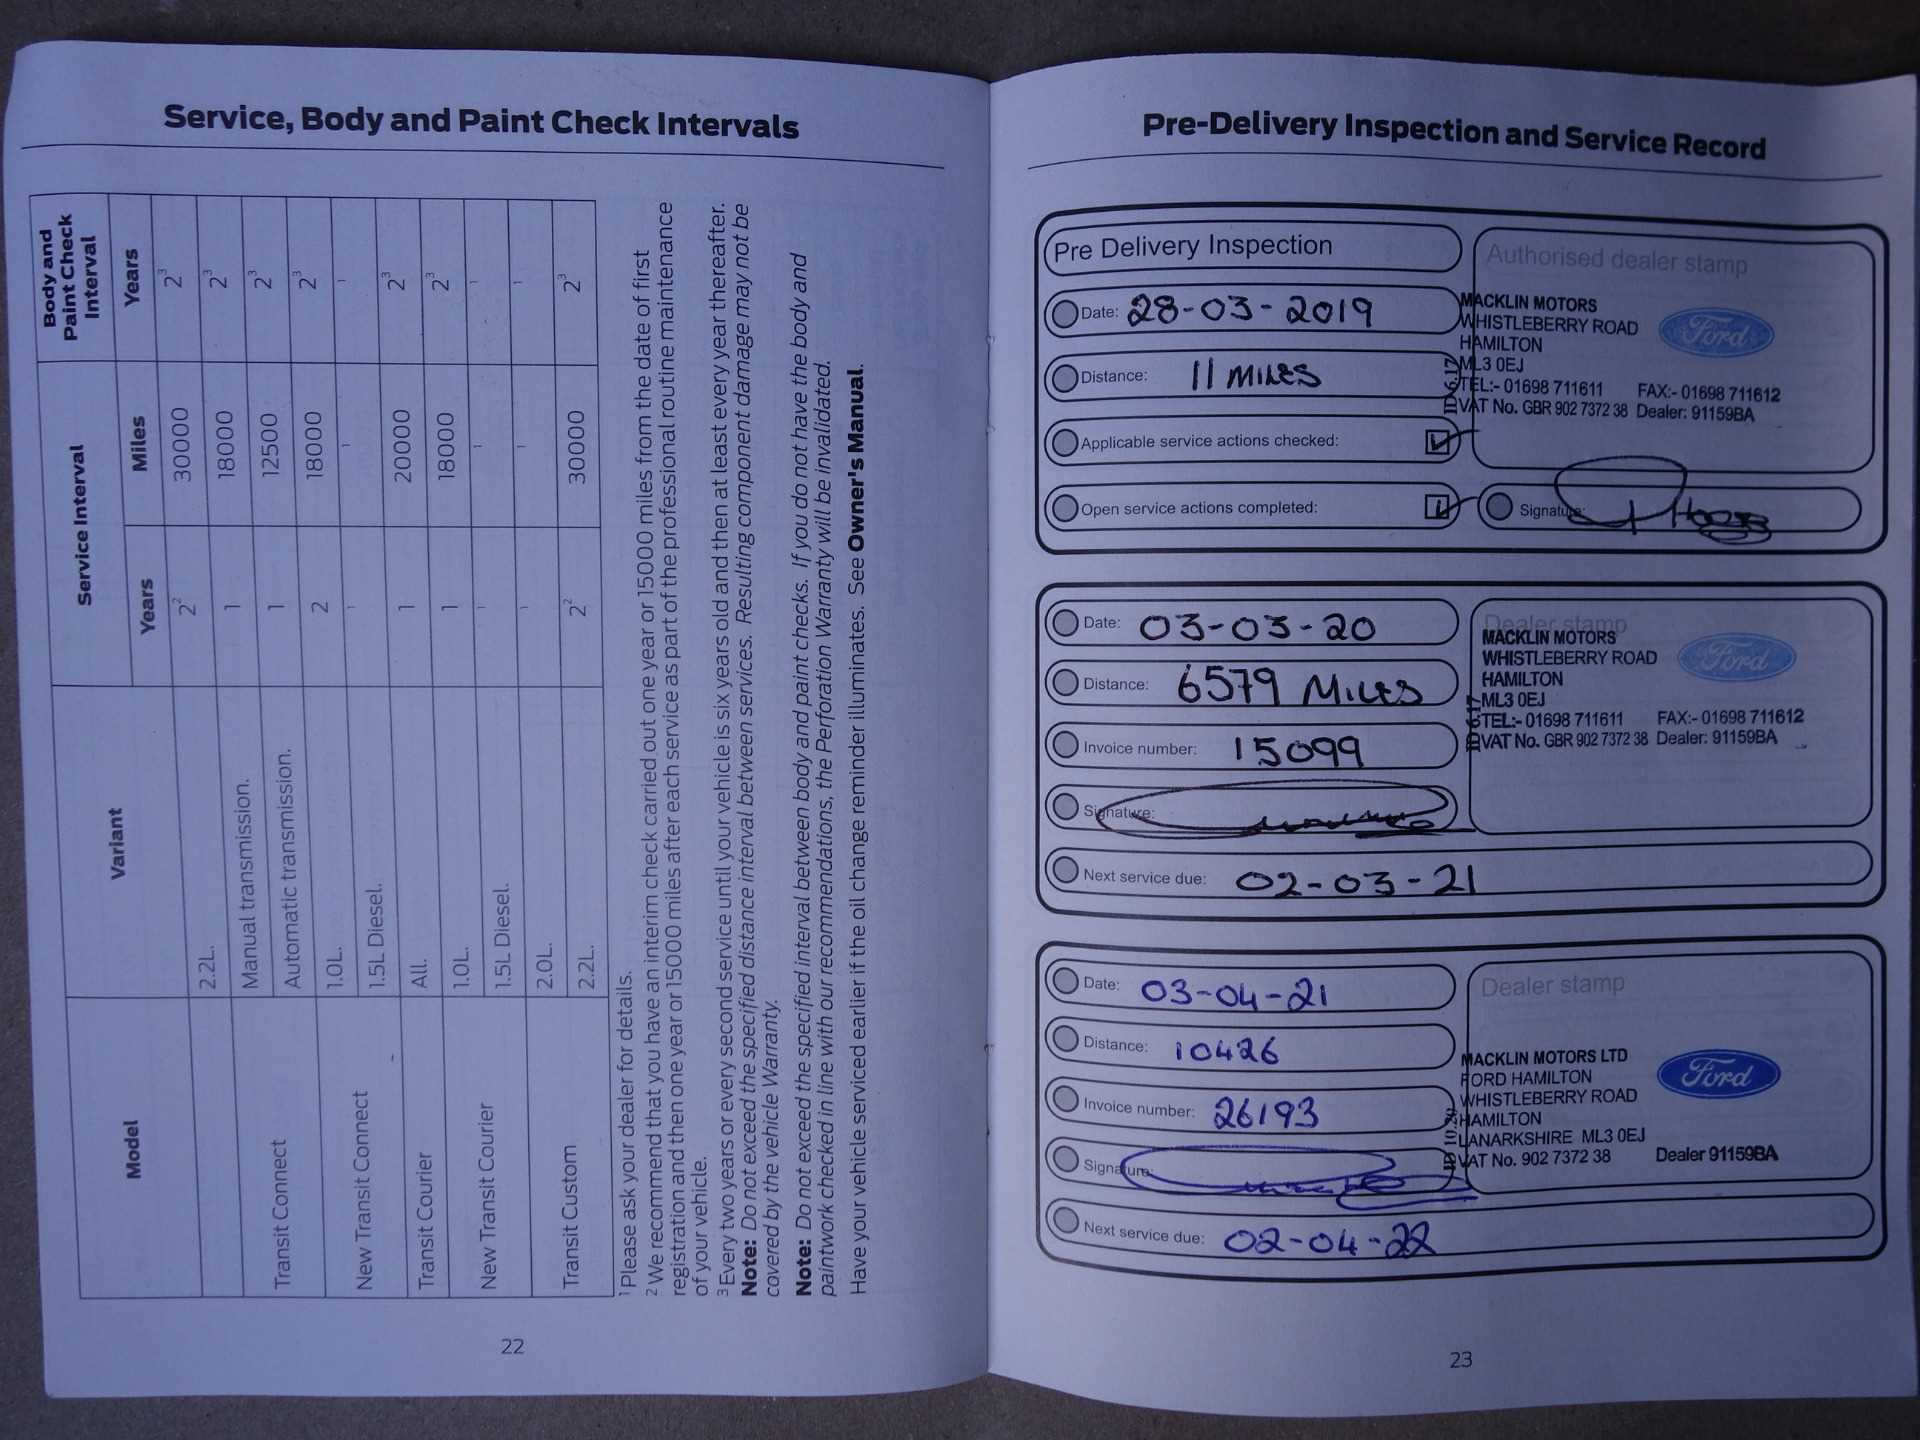 Service, Body and Paint Check Intervals
Model Variant Service Interval Body and Paint Check Interval
Years Miles Years
2.2L. 2² 30000 2³
Transit Connect Manual transmission. 1 18000 2³
Automatic transmission. 1 12500 2³
New Transit Connect 1.0L. 2 18000 2³
1.5L Diesel. ¹ ¹ ¹
Transit Courier All. 1 20000 2³
New Transit Courier 1.0L. 1 18000 2³
1.5L Diesel. ¹ ¹ ¹
Transit Custom 2.0L. ¹ ¹ ¹
2.2L. 2² 30000 2³
¹ Please ask your dealer for details.
² We recommend that you have an interim check carried out one year or 15000 miles from the date of first
registration and then one year or 15000 miles after each service as part of the professional routine maintenance
of your vehicle.
³ Every two years or every second service until your vehicle is six years old and then at least every year thereafter.
Note: Do not exceed the specified distance interval between services. Resulting component damage may not be
covered by the vehicle Warranty.
Note: Do not exceed the specified interval between body and paint checks. If you do not have the body and
paintwork checked in line with our recommendations, the Perforation Warranty will be invalidated.
Have your vehicle serviced earlier if the oil change reminder illuminates. See Owner's Manual.
22
Pre-Delivery Inspection and Service Record
Pre Delivery Inspection
Date: 28-03-2019
Distance: 11 MILES
Applicable service actions checked:
Open service actions completed:
Authorised dealer stamp
MACKLIN MOTORS
WHISTLEBERRY ROAD
HAMILTON
ML3 0EJ
TEL:- 01698 711611 FAX:- 01698 711612
VAT No. GBR 902 7372 38 Dealer: 91159BA
ID 6.17
Ford
Signature:
Date: 03-03-20
Distance: 6579 MILES
Invoice number: 15099
Signature:
Next service due: 02-03-21
Dealer stamp
MACKLIN MOTORS
WHISTLEBERRY ROAD
HAMILTON
ML3 0EJ
TEL:- 01698 711611 FAX:- 01698 711612
VAT No. GBR 902 7372 38 Dealer: 91159BA
ID 6.17
Ford
Date: 03-04-21
Distance: 10426
Invoice number: 26193
Signature:
Next service due: 02-04-22
Dealer stamp
MACKLIN MOTORS LTD
FORD HAMILTON
WHISTLEBERRY ROAD
HAMILTON
LANARKSHIRE ML3 0EJ
VAT No. 902 7372 38 Dealer 91159BA
ID 10.20
Ford
23